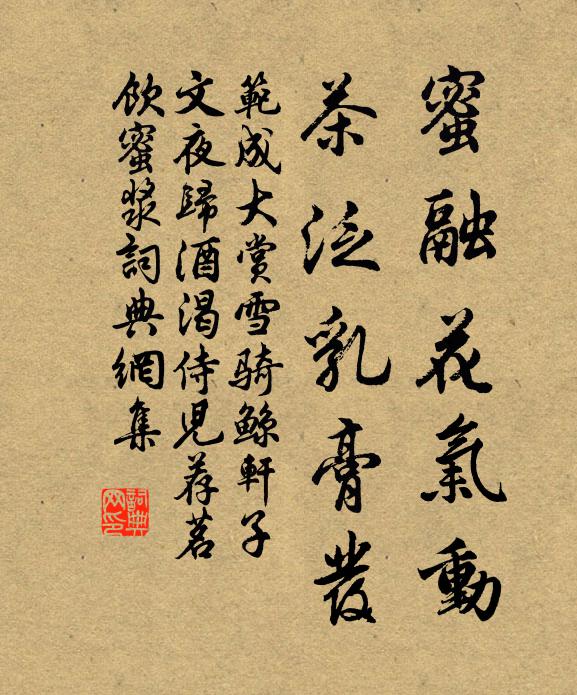 蜜融花氣動
茶泛乳膏發
範成大賞雪騎鯨軒子
文夜歸酒渴侍兒荐茗
飲蜜漿詞典網集
詞典
网印